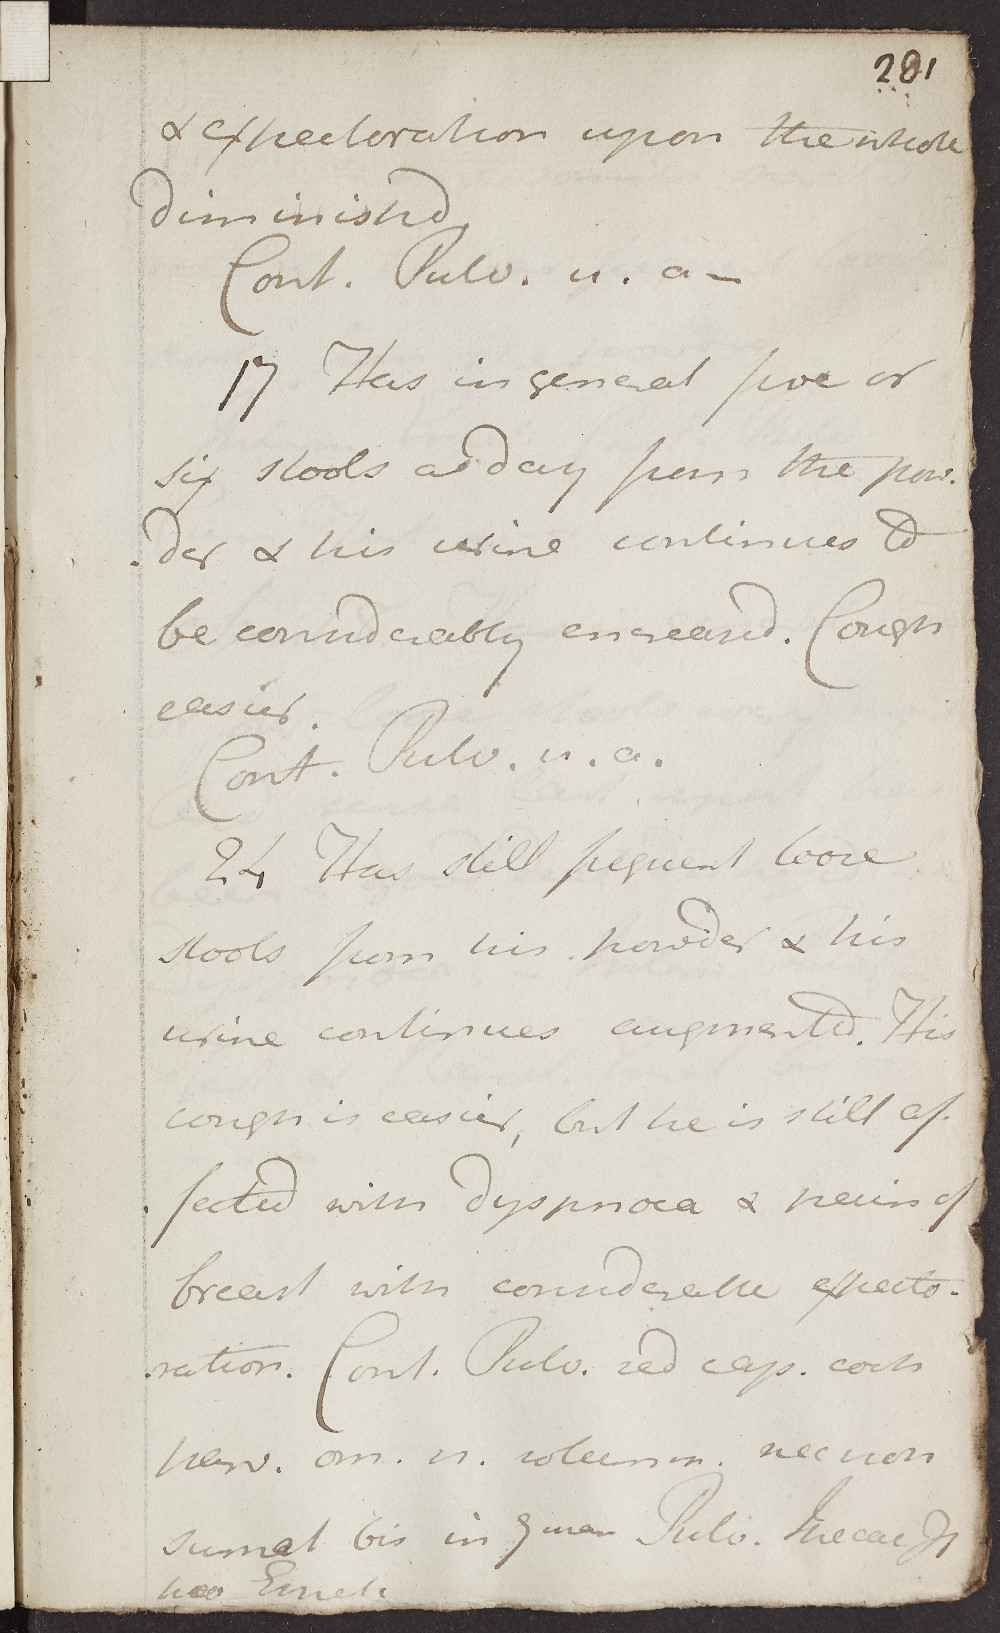 281
& expectoration upon the whole
diminished
Cont. Pulv. u. a—
17 Has in general five or
six stools a day from the pow.
.der & his urine continues to
be considerably encreased. Cough
easier.
Cont. Pulv. u. a.
24 Has still frequent loose
stools from his powder & his
urine continues augmented. His
cough is easier, but he is still af.
.fected with dyspnoea & pain of
breast with considerable expecto.
.ration. Cont. Pulv. sed cap. coch
parv. om. n. solumm. necnon
sumat bis in Pulv. Ipecac
pro Emet.